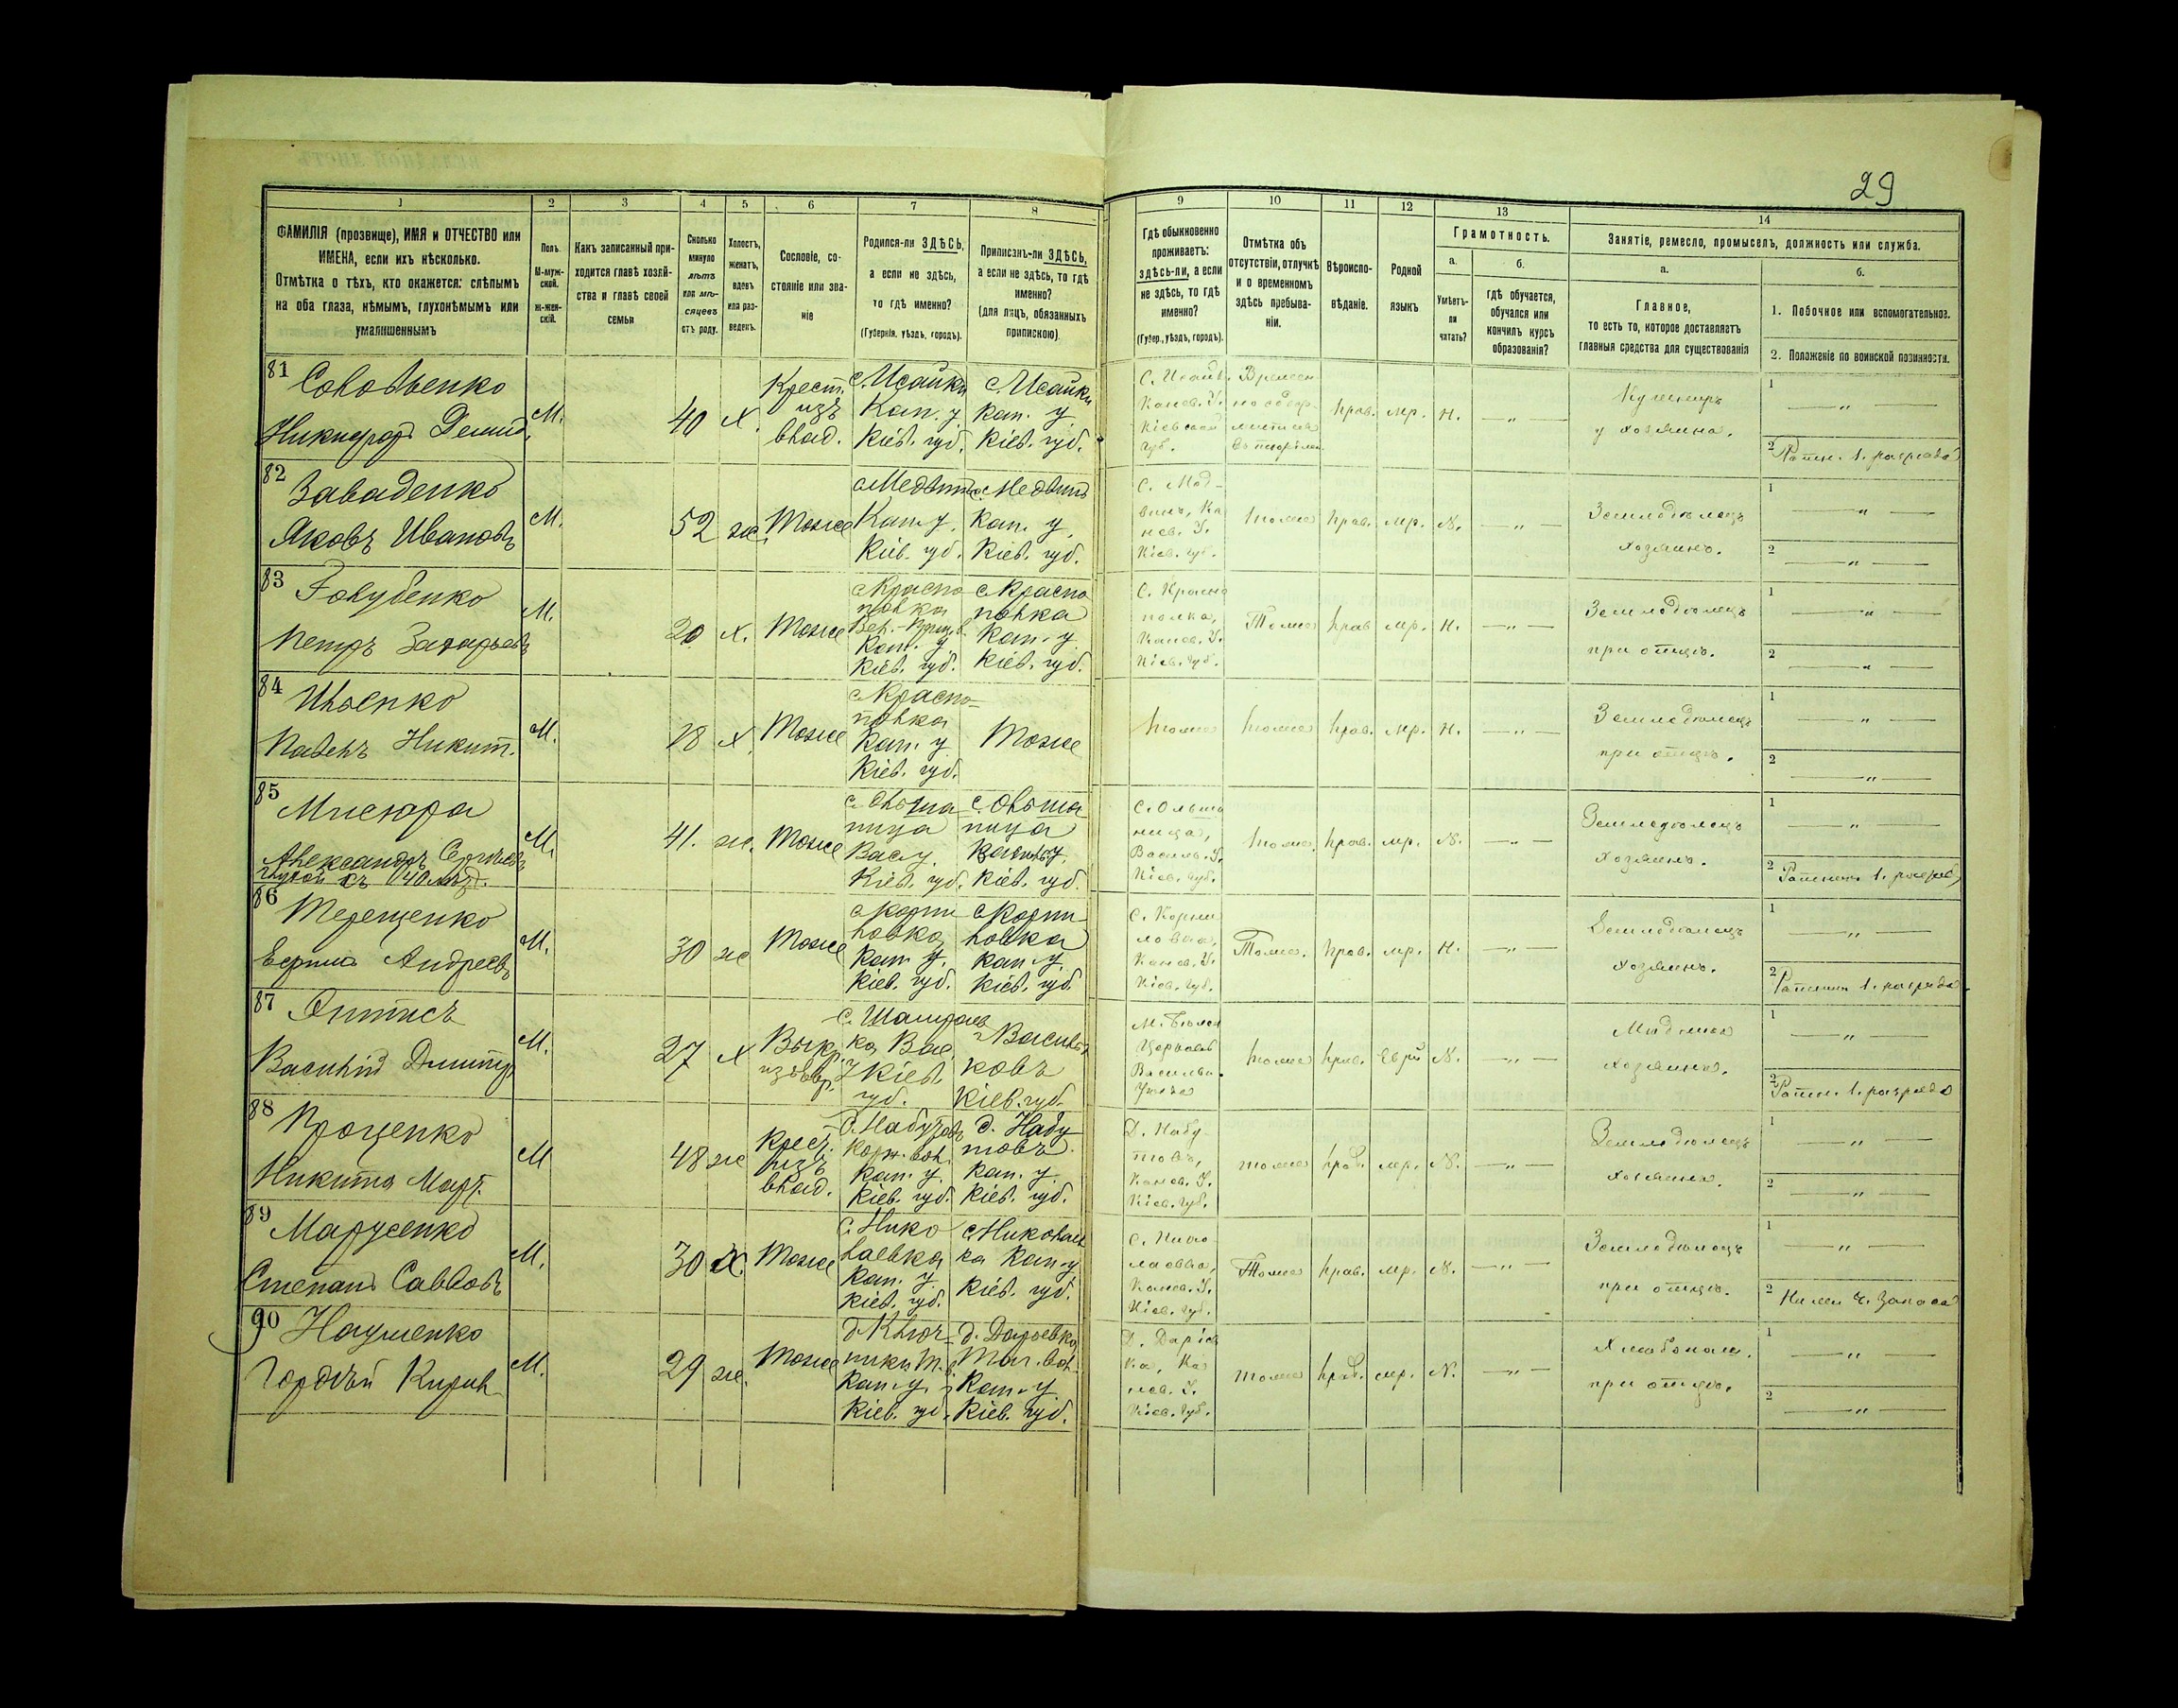 29
1 2 3 4 5 6 7 8 9 10 11 12 13 14
ФАМИЛІЯ (прозвище), ИМЯ и ОТЧЕСТВО или
ИМЕНА, если ихъ нѣсколько.
Отмѣтка о тѣхъ, кто окажется: слѣпымъ
на оба глаза, нѣмымъ, глухонѣмымъ или
умалишеннымъ
Полъ.
М-муж-
ской.
ж-жен-
скій.
Какъ записанный при-
ходится главѣ хозяй-
ства и главѣ своей
семьи
Сколько
минуло
лѣтъ
или мѣ-
сяцевъ
отъ роду.
Холостъ,
женатъ,
вдовъ
или раз-
веденъ.
Сословіе, со-
стояніе или зва-
ніе
Родился-ли ЗДѢСЬ,
а если не здѣсь,
то гдѣ именно?
(Губернія, уѣздъ, городъ).
Приписанъ-ли ЗДѢСЬ,
а если не здѣсь, то гдѣ
именно?
(для лицъ, обязанныхъ
припискою)
Гдѣ обыкновенно
проживаетъ:
здѣсь-ли, а если
не здѣсь, то гдѣ
именно?
(Губер., уѣздъ, городъ).
Отмѣтка объ
отсутствіи, отлучкѣ
и о временномъ
здѣсь пребыва-
ніи.
Вѣроиспо-
вѣданіе.
Родной
языкъ
Грамотность.
а.
Умѣетъ-
ли
читать?
б.
гдѣ обучается,
обучался или
кончилъ курсъ
образованія?
Занятіе, ремесло, промыселъ, должность или служба.
а.
Главное,
то есть то, которое доставляетъ
главныя средства для существованія
б.
1. Побочное или вспомогательное.
2. Положеніе по воинской повинности.
81
Соловьенко
Никифоръ Демид.
М.
40
х.
Крест.
изъ
влад.
с. Исайки
Кан. у.
Кіев. губ.
с. Исайки
Кан. у.
Кіев. губ.
С. Исайк.
Канев. У.
Кіевской
Губ.
Времен
но
прав.
мр.
Н.
— „ —
у хозяина.
1
— „ —
2 Ратн. 1. разряда
82
Заваденко
Яковъ Ивановъ
М.
52
ж.
Тоже
с. Медвинъ
Кан. у.
Кіев. губ.
с. Медвинъ
Кан. у.
Кіев. губ.
С. Мед-
винъ, Ка
нев. У.
Кіев. губ.
тоже
прав.
мр.
Н.
— „ —
Земледѣлецъ
хозяинъ.
1
— „ —
2
— „ —
83
Голубенко
Петръ Захарьевъ
М.
20
х.
Тоже
с. Краснополка
Кан. у.
Кіев. губ.
с. Красно
полка
Кан. у.
Кіев. губ.
С. Красно
полка,
Канев. У.
Кіев. губ.
Тоже
прав.
мр.
Н.
— „ —
Земледѣлецъ
при отцѣ.
1
— „ —
2
— „ —
84
Ильенко
Павелъ Никит.
М.
28
х.
Тоже
с. Красно-
полка
Кан. у.
Кіев. губ.
Тоже
тоже
тоже
прав.
мр.
Н.
— „ —
Земледѣлецъ
при отцѣ.
1
— „ —
2
— „ —
85
Мисюра
Александръ Сергѣевъ
глухой съ 40 лѣтъ.
М.
41.
ж.
Тоже
с. Ольша
ница
Вас. у.
Кіев. губ.
с. Ольша
ница
Васильк. у.
Кіев. губ.
С. Ольша
ница,
Василь. У.
Кіев. губ.
тоже.
прав.
мр.
Н.
— „ —
Земледѣлецъ
хозяинъ.
1
— „ —
2 Ратникъ 1. разряд.
86
Терещенко
Ефимъ Андреевъ
М.
30
ж
Тоже
с. Корни
ловка
Кан. у.
Кіев. губ.
с. Корни
ловка
Кан. у.
Кіев. губ.
С. Корни
ловка,
Канев. У.
Кіев. губ.
Тоже.
прав.
мр.
Н.
— „ —
Земледѣлецъ
хозяинъ.
1
— „ —
2 Ратникъ 1. разряда.
87
Василій Дмитр.
М.
27
х
Выкр.
изъ евр.
с. Шамраев
ка Вас.
У Кіев.
губ.
г. Василь
ковъ
Кіев. губ.
М. Бѣлая
Церковь
Васильк.
Уѣзда
тоже
прав.
Евр.
Н.
— „ —
хозяинъ.
1
— „ —
2 Ратн. 1. разряда
88
Проценко
Никита Март.
М
48
ж
Крест.
изъ
влад.
д. Набутовъ
Корн. вол.
Кан. у.
Кіев. губ.
д. Набу
товъ
Кан. у.
Кіев. губ.
Д. Набу-
товъ,
Канев. У.
Кіев. Губ.
тоже
прав.
мр.
Н.
— „ —
Земледѣлецъ
хозяинъ.
1
— „ —
2
— „ —
89
Марусенко
Степанъ Савковъ
М.
30
х.
Тоже
с. Нико
лаевка
Кан. у.
Кіев. губ.
с. Николаев
ка Кан. у
Кіев. губ.
С. Нико
лаевка,
Канев. У.
Кіев. губ.
Тоже
прав.
мр.
Н.
— „ —
Земледѣлецъ
при отцѣ.
1
— „ —
2 запаса
90
Науменко
Гордѣй Кирил.
М.
29
ж.
Тоже
д. Ключ-
ники
Кан. у.
Кіев. губ.
д. Дарьевка
Таг. вол.
Кан. у.
Кіев. губ.
Д. Даріев
ка, Ка
нев. У.
Кіев. губ.
тоже
прав.
мр.
Н.
— „ —
Хлѣбопаш.
при отцѣ.
1
— „ —
2
— „ —